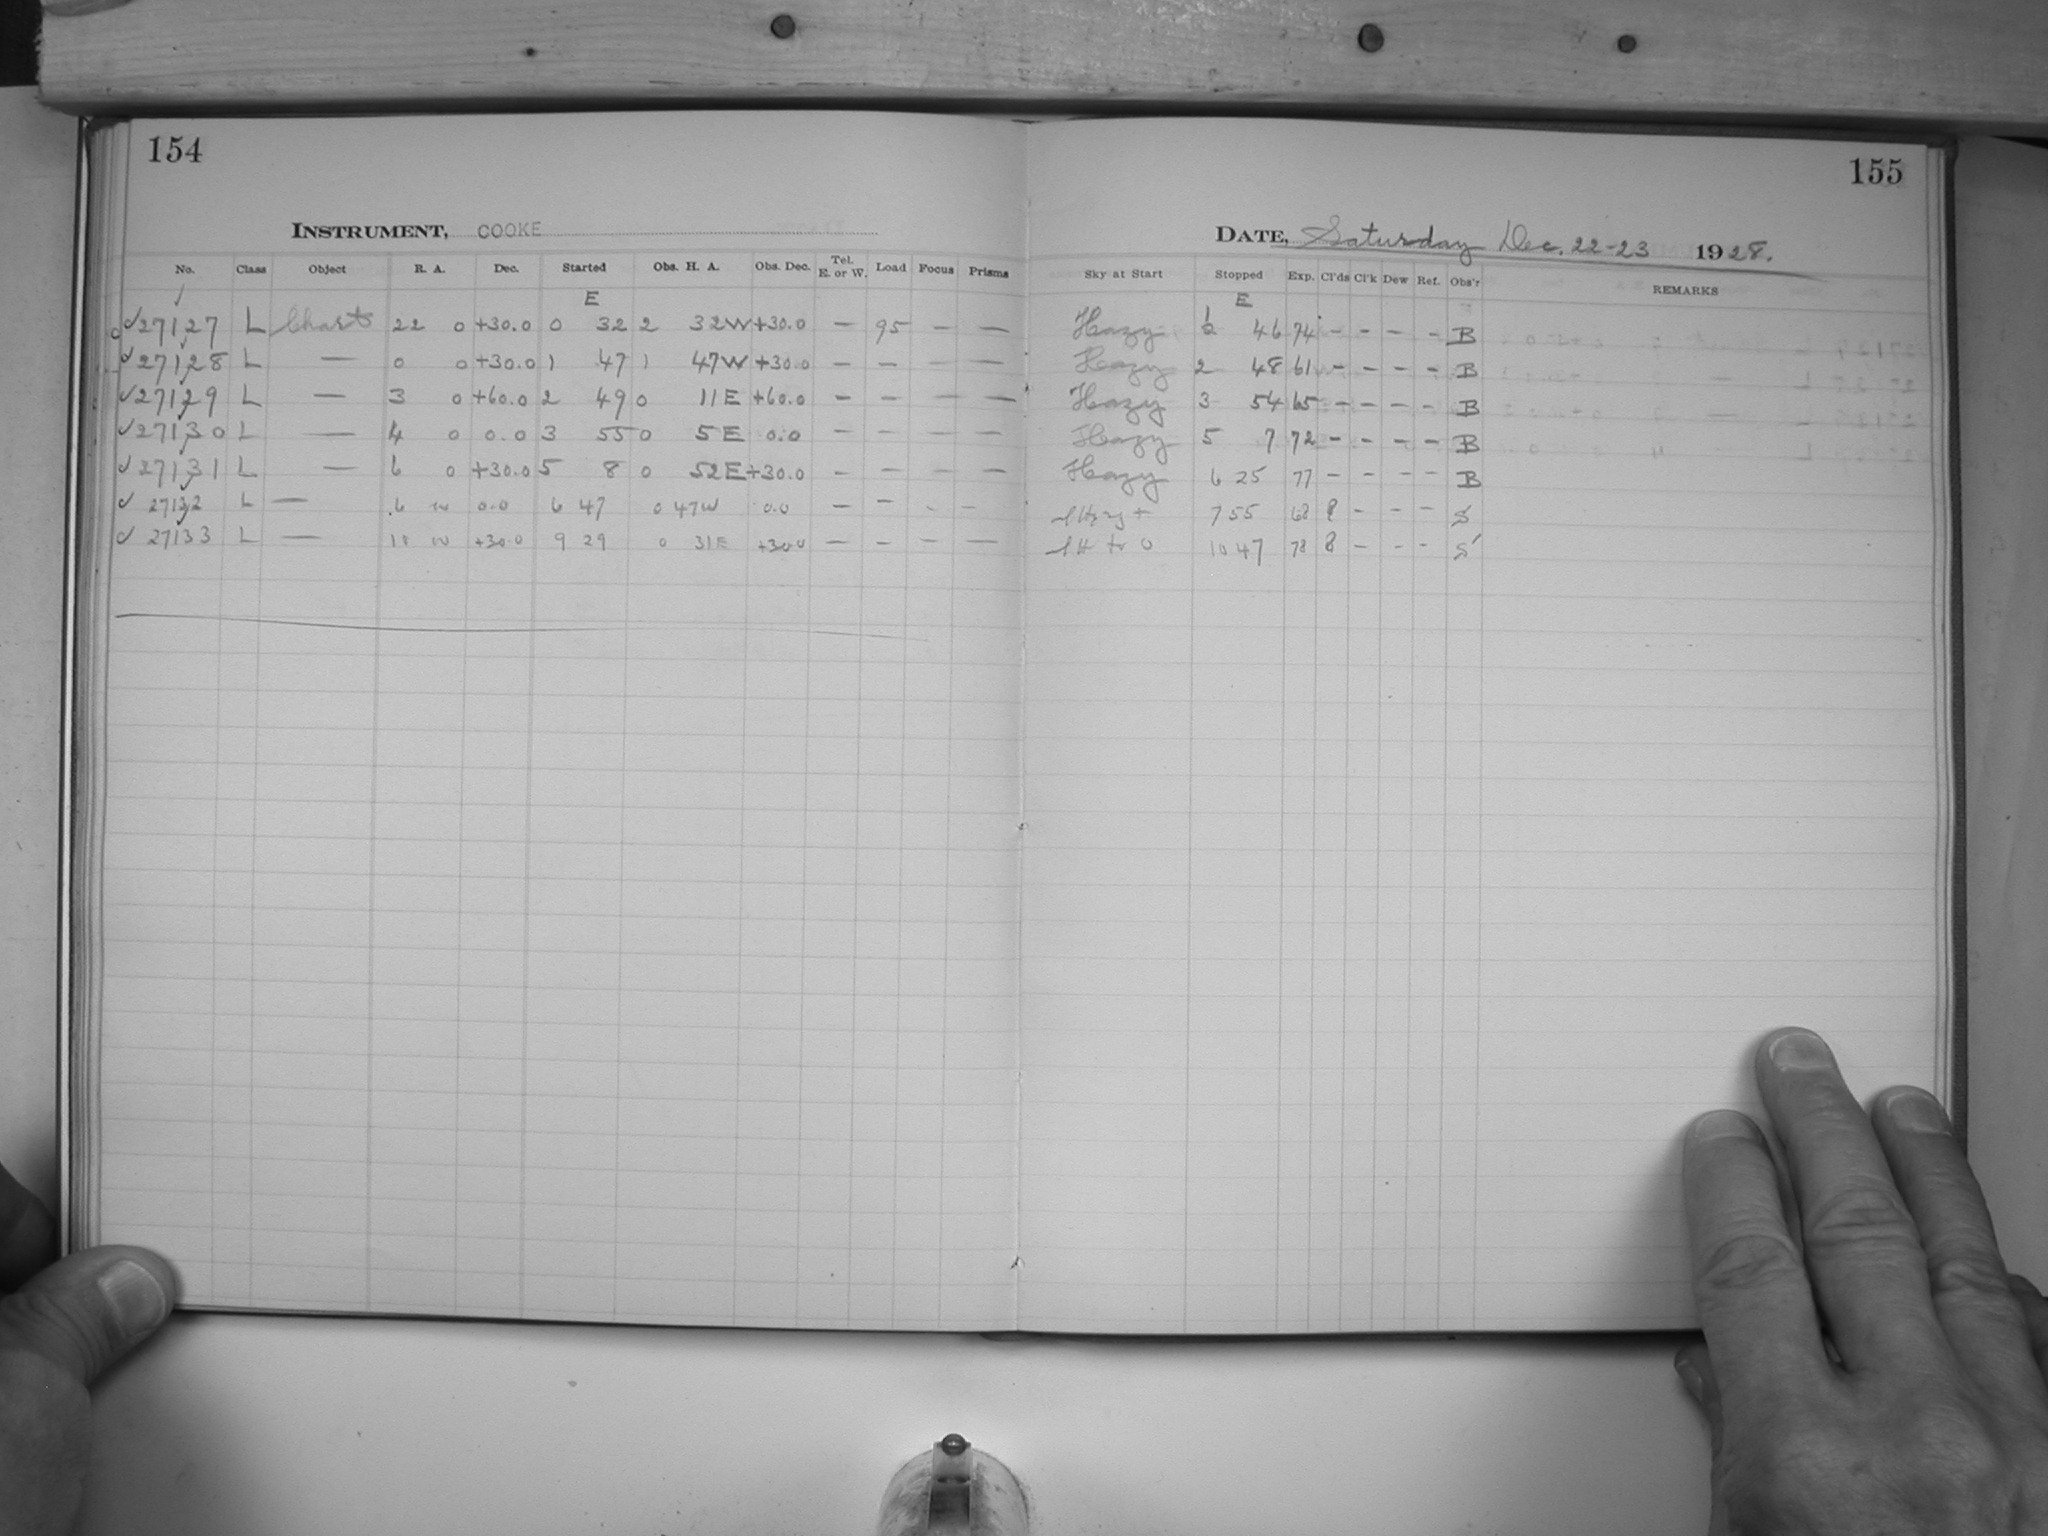 154
155
INSTRUMENT, COOKE
DATE, Saturday Dec. 22-23 1928.
No. Class Object R. A. Dec. Started Obs. H. A. Obs. Dec. Tel. E. or W. Load Focus Prisms Sky at Start Stopped Exp. Cl'ds Cl'k Dew Ref. Obs'r REMARKS
E E
27127 L Chart 22 0 +30.0 0 32 2 32W +30.0 — 95 — — Hazy 1 46 74 - - - - B
27128 L — 0 0 +30.0 1 47 1 47W +30.0 — — — — Hazy 2 48 61 - - - - B
27129 L — 3 0 +60.0 2 49 0 11E +60.0 — — — — Hazy 3 54 65 - - - - B
27130 L — 4 0 0.0 3 55 0 5E 0.0 — — — — Hazy 5 7 72 - - - - B
27131 L — 6 0 +30.0 5 8 0 52E +30.0 — — — — Hazy 6 25 77 - - - - B
27132 L — 6 0.0 6 47 0 47W 0.0 — — - — 7 55 68 - - - S
27133 L — +30.0 9 29 0 31E +30.0 — — — — 10 47 78 8 - - - S